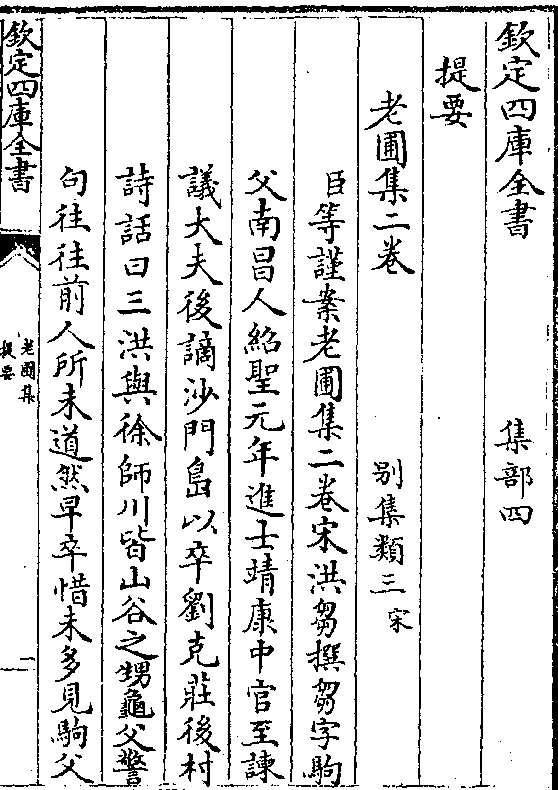 欽定四庫全書 集部四
提要
老圃集二卷 别集類三宋
臣等謹案老圃集二卷宋洪芻撰芻字駒
父南昌人紹聖元年進士靖康中官至諫
議大夫後謫沙門島以卒劉克莊後村
詩話曰三洪與徐師川皆山谷之甥龜父警
句往往前人所未道然早卒惜未多見駒父
欽定四庫全書
老圃集
提要
一